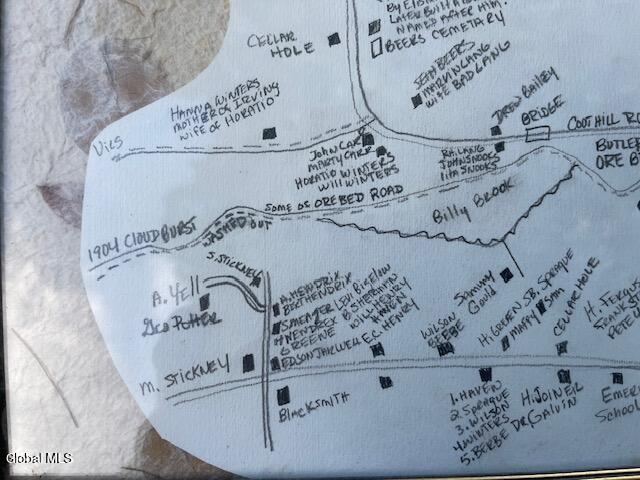 LATER BUILT
NAMED AFTER HIM.
BEERS CEMETARY
CELLAR
HOLE
SETH BEERS
MARVIN LANG
WIFE BAD LANG
HANNA WINTERS
MOTHER OF IRVING
WIFE OF HORATIO
DREW BAILEY
BRIDGE
COOT HILL RO
Vies
JOHN CARR
MARTY CARR
HORATIO WINTERS
WILL WINTERS
RA. LANG
JOHN SNOOKS
IRA SNOOKS
BUTLER
ORE B
SOME OF OREBED ROAD
Billy BROOK
1904 CLOUD BURST
WASHED OUT
S. STICKNEY
A. YELL
Geo POTTER
A. HENDRIX
BERT HENDRIX
LEW BIGELOW
B. SHERMAN
WILL HENRY
E.C. HENRY
GREENE
EDSON
Sammy
Gould
WILSON
BEEBE
H. GREEN SR. SPRAGUE
MAPPY
SAM
CELLAR HOLE
H. FERGUS
FRANK
PETE
M. STICKNEY
BlACKSMITH
1. HAVEN
2. SPRAGUE
3. WILSON
4. WINTERS
5. BERBE
H. JOINER
DR GALVIN
EMER
SCHOOL
Global MLS